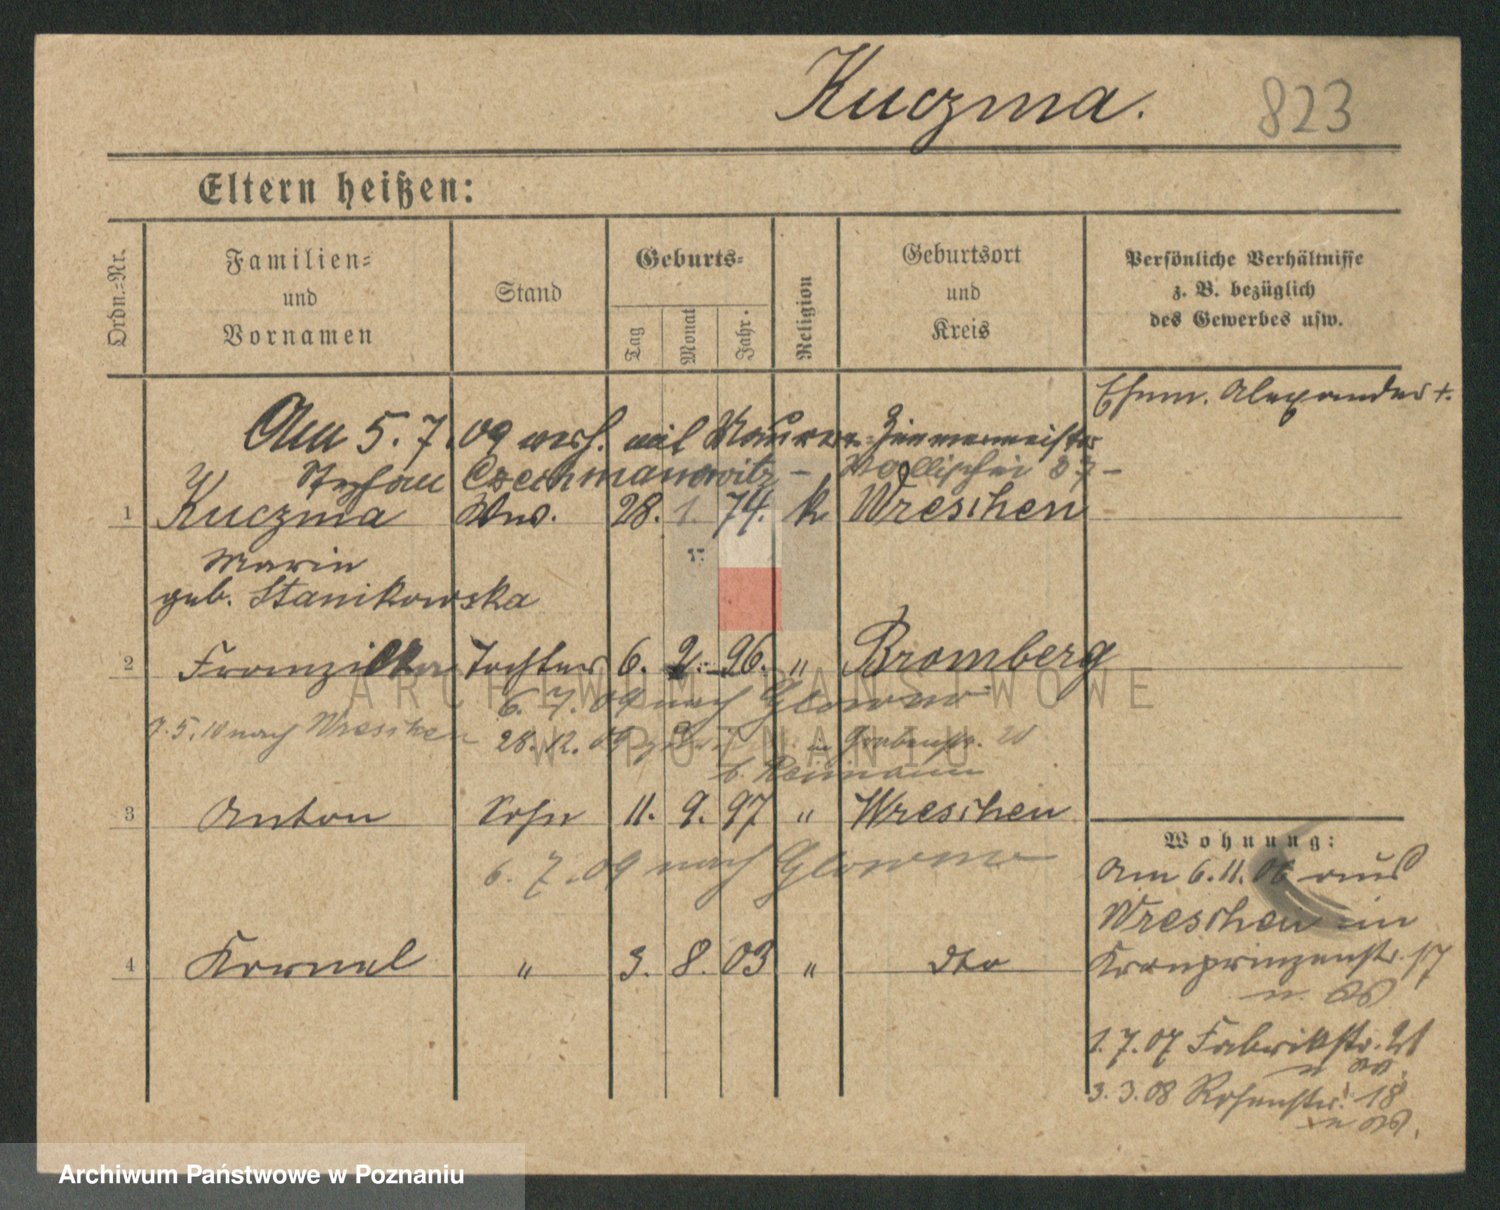 Kuczma. 823
Eltern heißen:
Ordn.-Nr.
Familien-
und
Vornamen
Stand
Geburts-
Tag
Monat
Jahr.
Religion
Geburtsort
und
Kreis
Persönliche Verhältnisse
z. B. bezüglich
des Gewerbes usw.
Ehem. Alexander †.
Am 5. 7. 09 verh. mit Maurer- Zimmermeister
Stephan Czechmanowitz – Wallischei 37 –
1 Kuczma Wwe. 28. 1. 74. k Wreschen
Maria
geb. Stanikowska
2 Franziska Tochter 6. 2. 96. " Bromberg
6. 7. 09 nach Glowno
9. 5. 10 nach Wreschen 28. 12. 09 in Grabenstr.
b. Reimann
3 Anton Sohn 11. 9. 97 " Wreschen
6. 7. 09 nach Glowno
4 Kornel " 3. 8. 03 " dto
Wohnung:
Am 6. 11. 06 aus
Wreschen in
Kronprinzenstr. 17
1. 7. 07 Fabrikstr. 21
3. 3. 08 Rosenstr. 18
ARCHIWUM PAŃSTWOWE
W POZNANIU
Archiwum Państwowe w Poznaniu